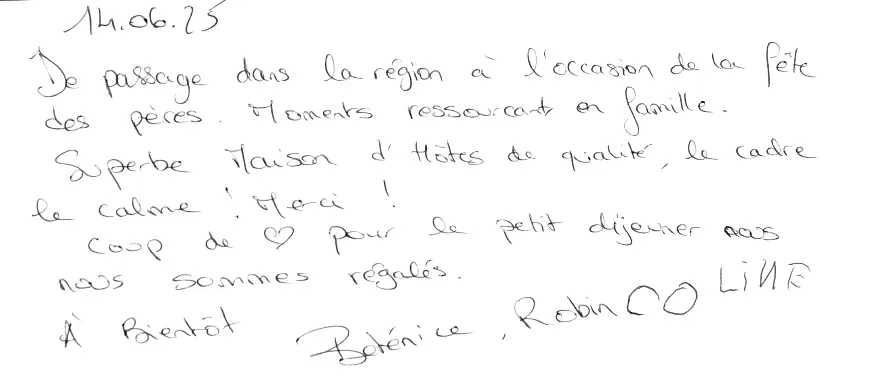 14.06.25
De passage dans la région à l'occasion de la fête
des pères. Moments ressourcant en famille.
Superbe Maison d'Hôtes de qualité, le cadre
le calme ! Merci !
Coup de ♡ pour le petit déjeuner nous
nous sommes régalés.
À Bientôt Bérénice, Robin COLiNE